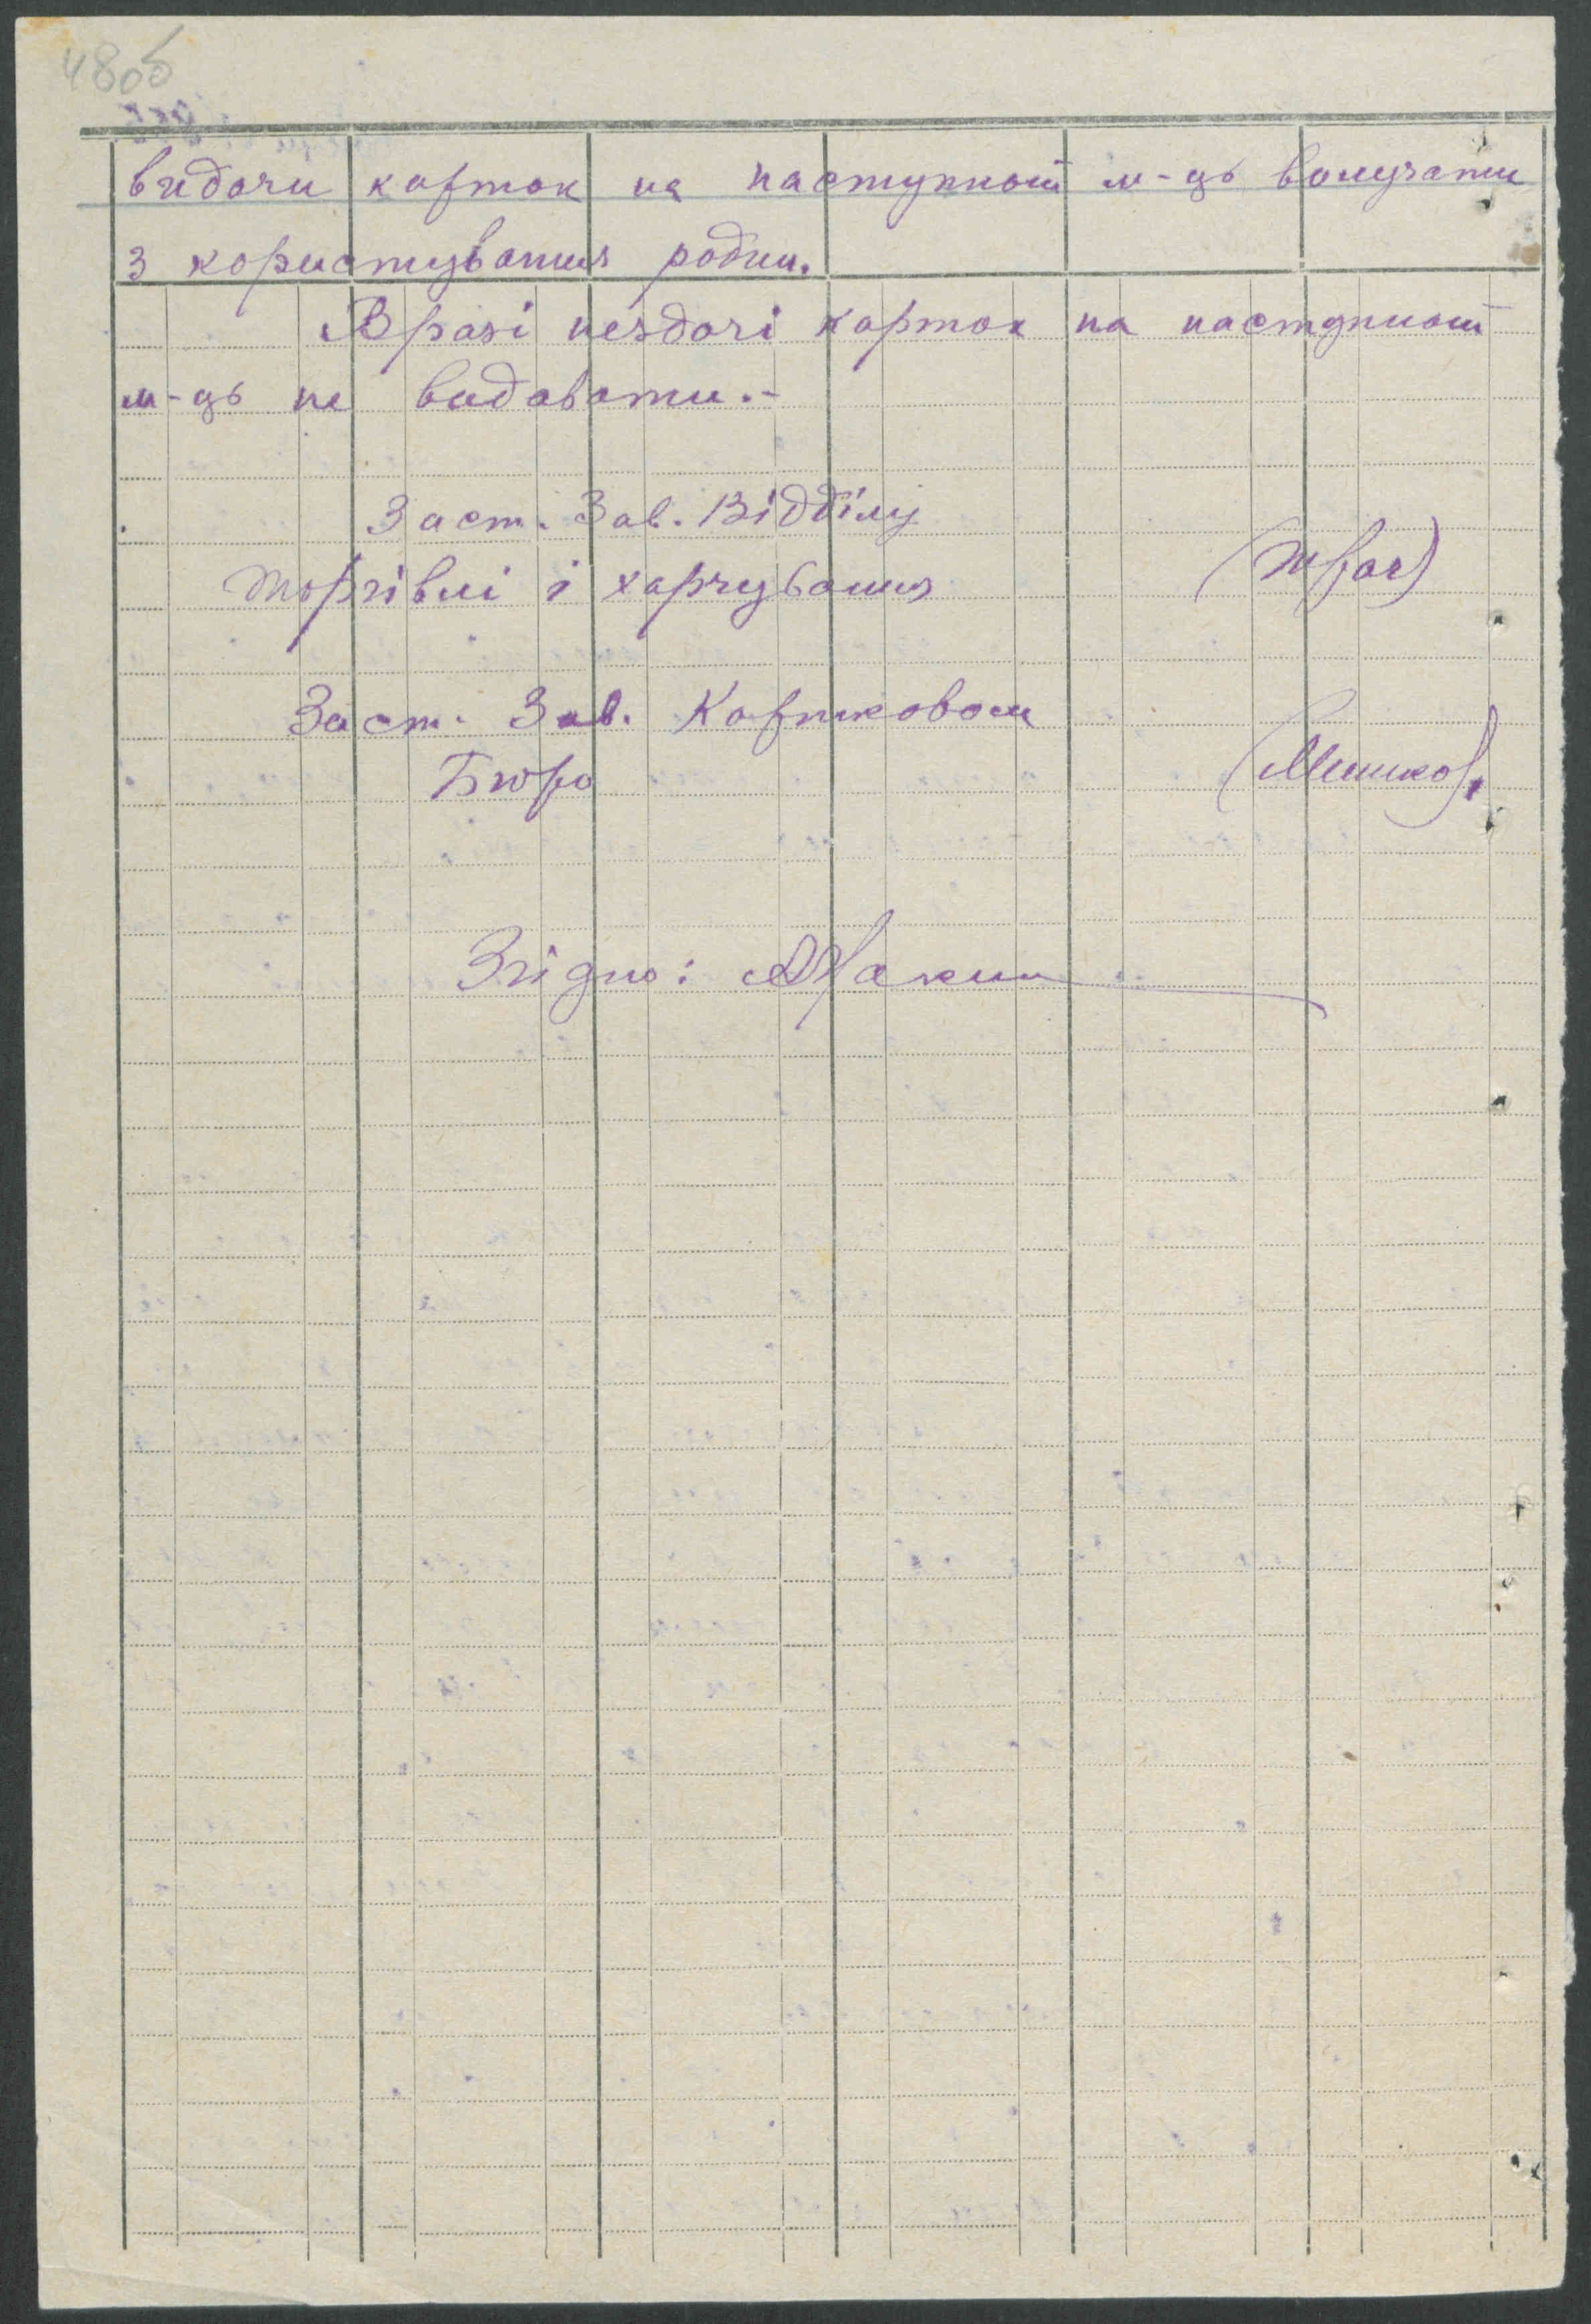 48об
видачи карток на наступной м-ць вилучати
з користування родин.
В разі нездачі карток на наступной
м-ць не видавати.-
Заст. Зав. Відділу
торгівлі і харчування
Заст. Зав. Карткового
Бюро
Згідно: